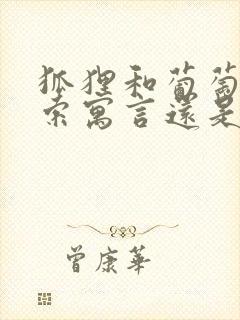 狐狸和葡萄
索寓言還是
曾康華